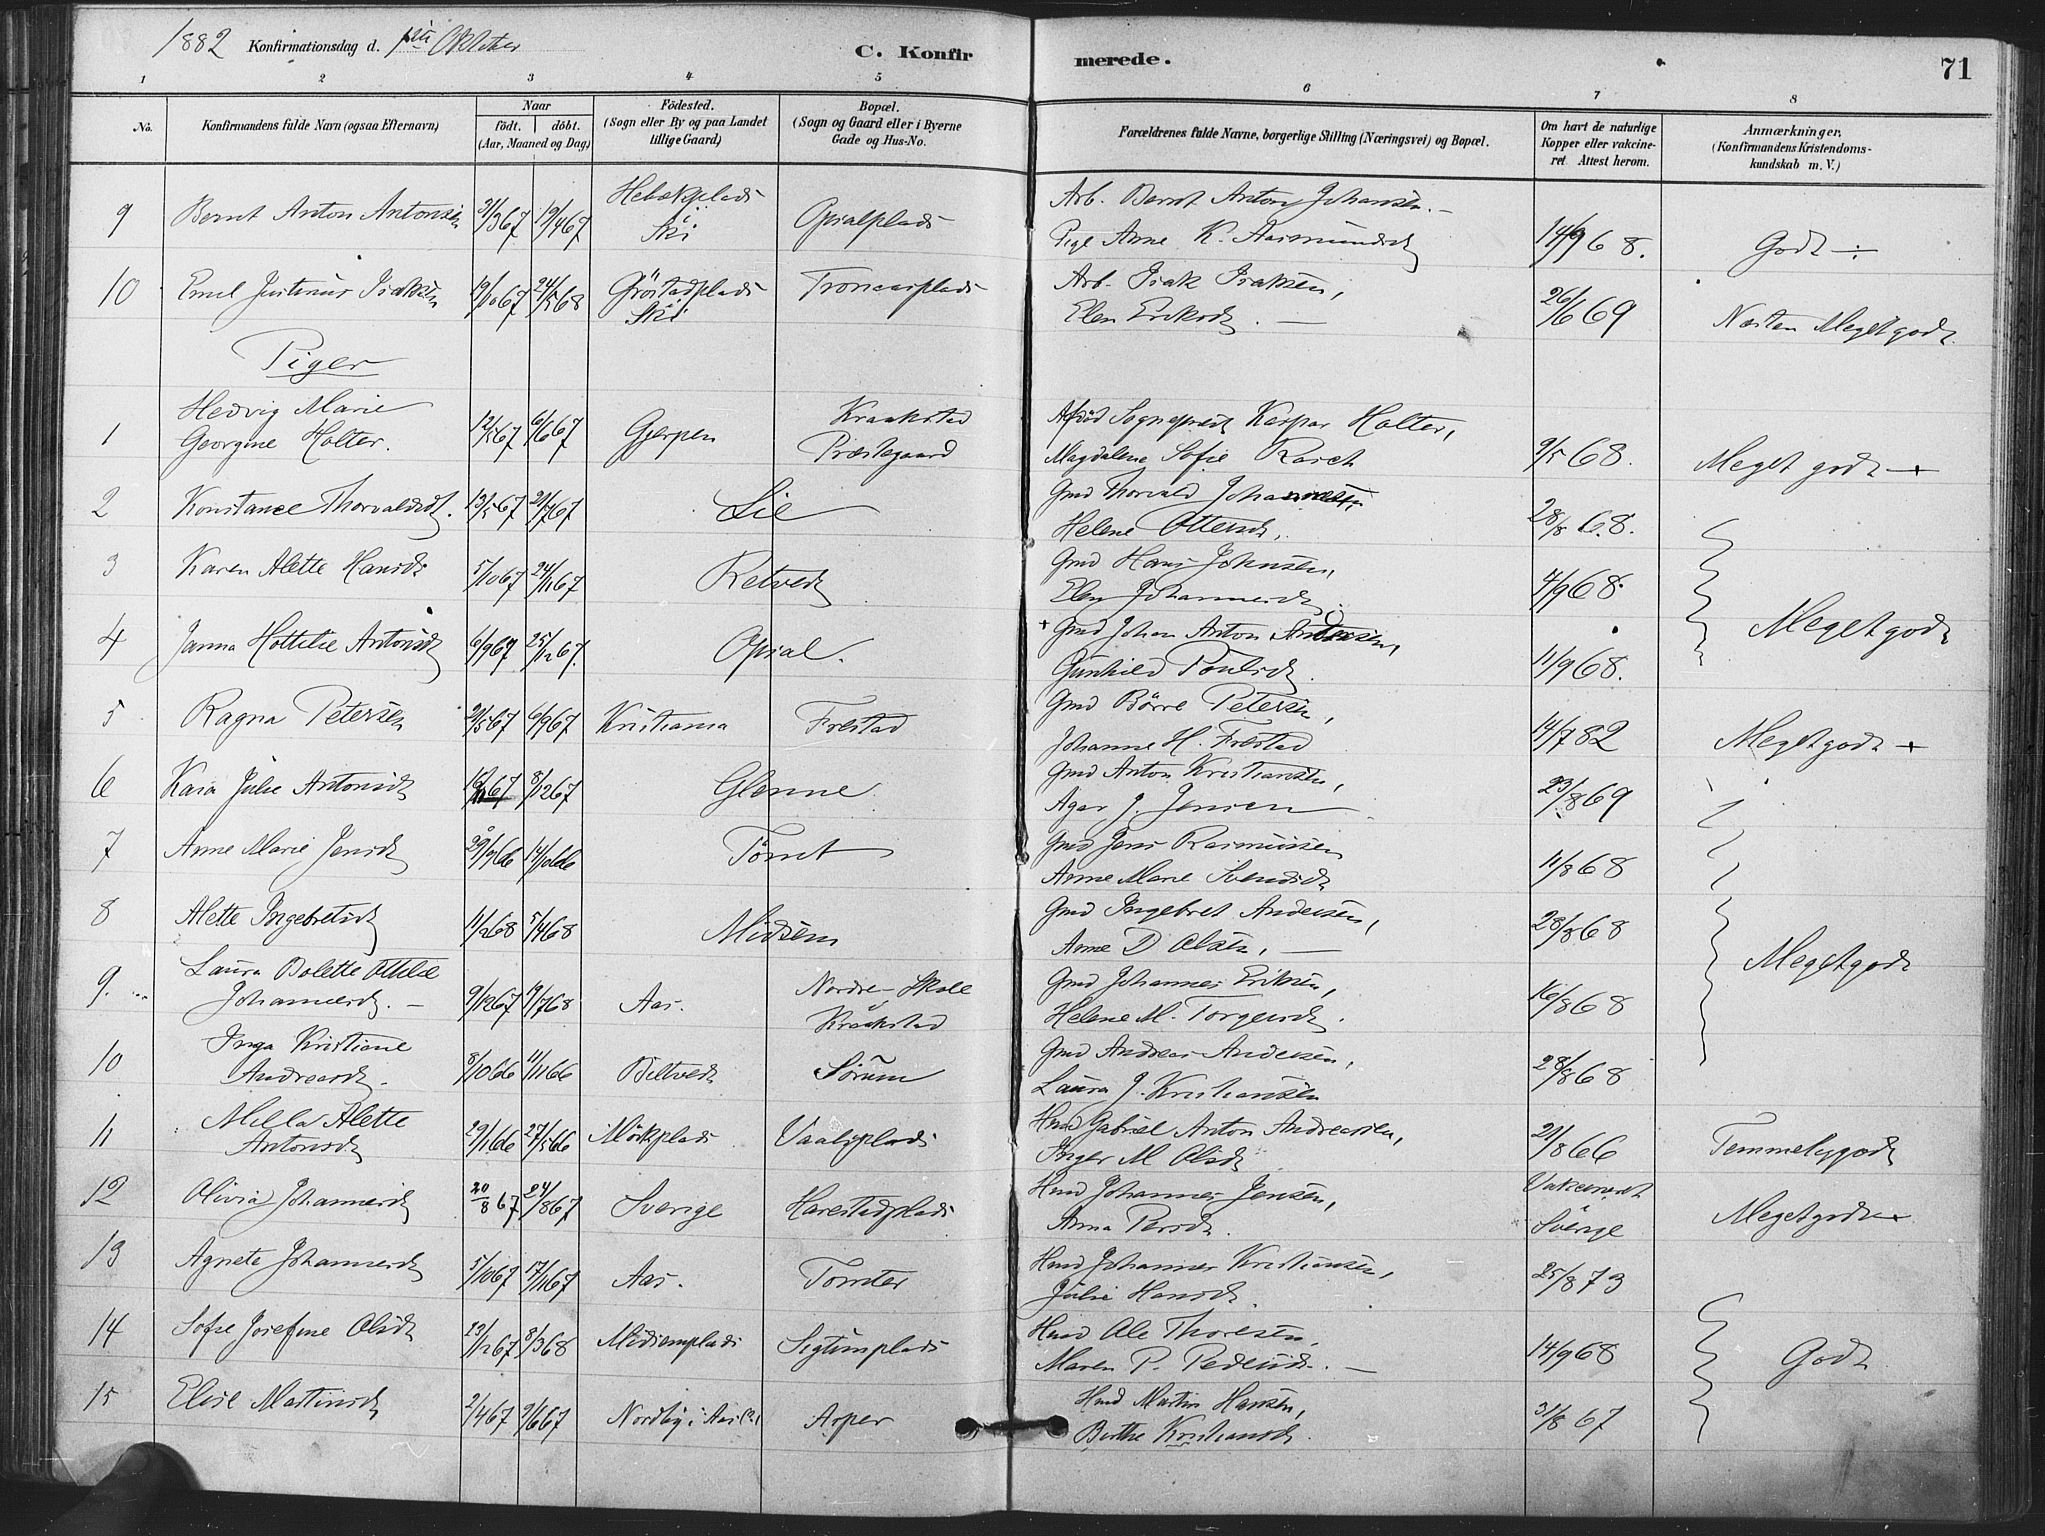 1882 Konfirmationsdag d. 1ste Oktober C. Konfirmerede. 71
1 2 3 4 5 6 7 8
No. Konfirmandens fulde Navn (ogsaa Efternavn)
Naar
födt. | döbt.
(Aar, Maaned og Dag)
Födested.
(Sogn eller By og paa Landet
tillige Gaard)
Bopæl.
(Sogn og Gaard eller i Byerne
Gade og Hus-No.
Forældrenes fulde Navne, borgerlige Stilling (Næringsvei) og Bopæl.
Om havt de naturlige
Kopper eller vakcine-
ret Attest herom.
Anmærkninger.
(Konfirmandens Kristendoms-
kundskab m. V.)
9 Bernt Anton Antonsen 31/3 67 19/4 67 Hebækplads i Ski Opsalplads Arb. Bernt Anton Johansen.
Pige Anne K. Aasmundsd 14/9 68. Godt ÷
10 Emil Justinus Isaksen 19/10 67 24/5 68 Gröstadplads Ski Troneasplads Arb. Isak Isaksen,
Elen Eriksd. 26/6 69 Næsten Megetgodt
Piger
1 Hedvig Marie
Georgine Holter. 12/5 67 6/6 67 Gjerpen Kraakstad
Præstegaard Afdöd Sognepræst Kaspar Holter,
Magdalena Sofie Rasch 9/5 68. Meget godt +
2 Konstance Thorvaldsd. 13/5 67 21/7 67 Lie Gmd Thorvald Johannesen,
Helene Ottersd, 28/8 68.
3 Karen Alette Hansd 5/10 67 24/11 67 Retvedt Gmd Hans Johnsen,
Elen Johannesd 4/9 68.
4 Janna Hottilie Antonsd 6/9 67 25/12 67. Opsal. + Gmd Johan Anton Andersen,
Gunhild Poulsd. 11/9 68. Megetgodt
5 Ragna Petersen 21/5 67 6/9 67 Kristiania Frestad Gmd Börre Petersen,
Johanne H. Frestad 14/7 82 Megetgodt +
6 Kaia Julie Antonsd 67 8/12 67 Glenne. Gmd Anton Kristiansen,
Agar J. Jensen 23/8 69
7 Anne Marie Jensd 29/7 66 14/10 66 Tömt Gmd Jens Rasmussen
Anne Marie Svendsd 11/8 68
8 Alette Ingebretsd 11/2 68 5/4 68 Midsem Gmd Ingebret Andersen,
Anne D Olsen, 28/8 68
9. Laura Bolette Otilie
Johannesd. 9/12 67 19/7 68 Aas. Nordre Skole
Kraakstad Gmd Johannes Eriksen,
Helene M. Torgersd. 16/8 68 Megetgodt
10 Inga Kristiane
Andreasd. 8/10 66 11/11 66 Biltvedt Sörum Gmd Andreas Andersen,
Laura J. Kristiansen 28/8 68
11 Milla Alette
Antonsd 29/1 66 27/5 66 Mörkplads Vaalsplads Hmd Gabriel Anton Andreassen,
Inger M Olsd 21/8 66 Temmeliggodt
12 Olivia Johannesd 20/8 67 24/8 67 Sverige Harestadplads Hmd Johannes Jensen,
Anna Persd. Vakcineret
Sverige Megetgodt +
13 Agnete Johannesd 5/10 67 17/11 67 Aas. Tomter Hmd Johannes Kristiansen,
Julie Hansd 25/8 73
14 Sofie Josefine Olsd 23/12 67 8/3 68 Midsemplads Sigtunplads Hmd Ole Thoresen,
Maren P. Pedersd. 14/9 68 Godt
15 Elise Martinsd 2/4 67 9/6 67 Nordby i Aas Asper Hmd Martin Hansen,
Berthe Kristiansd. 31/8 67